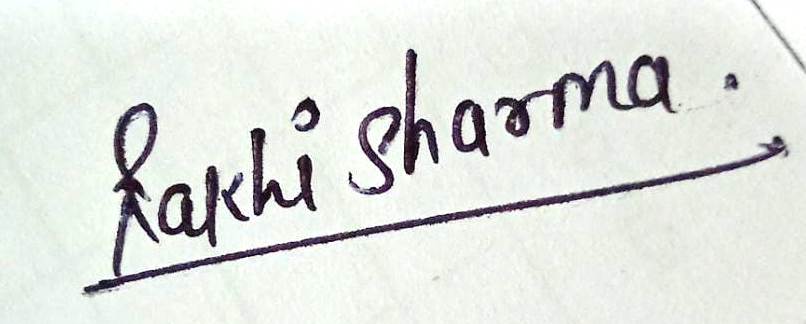 Rakhi Sharma.